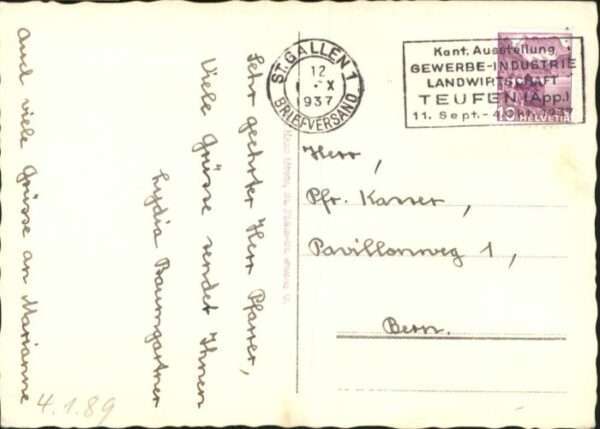 ST. GALLEN 1
12
X
1937
BRIEFVERSAND
Kant. Ausstellung
GEWERBE-INDUSTRIE
LANDWIRTSCHAFT
TEUFEN (App.)
11. Sept. - 4. Okt. 1937
HELVETIA
Sehr geehrter Herr Pfarrer,
Viele Grüsse sendet Ihnen
Lydia Baumgartner
und viele Grüsse an Marianne
Herr,
Pfr. Kasser,
Pavillonweg 1,
Bern.
4.1.89